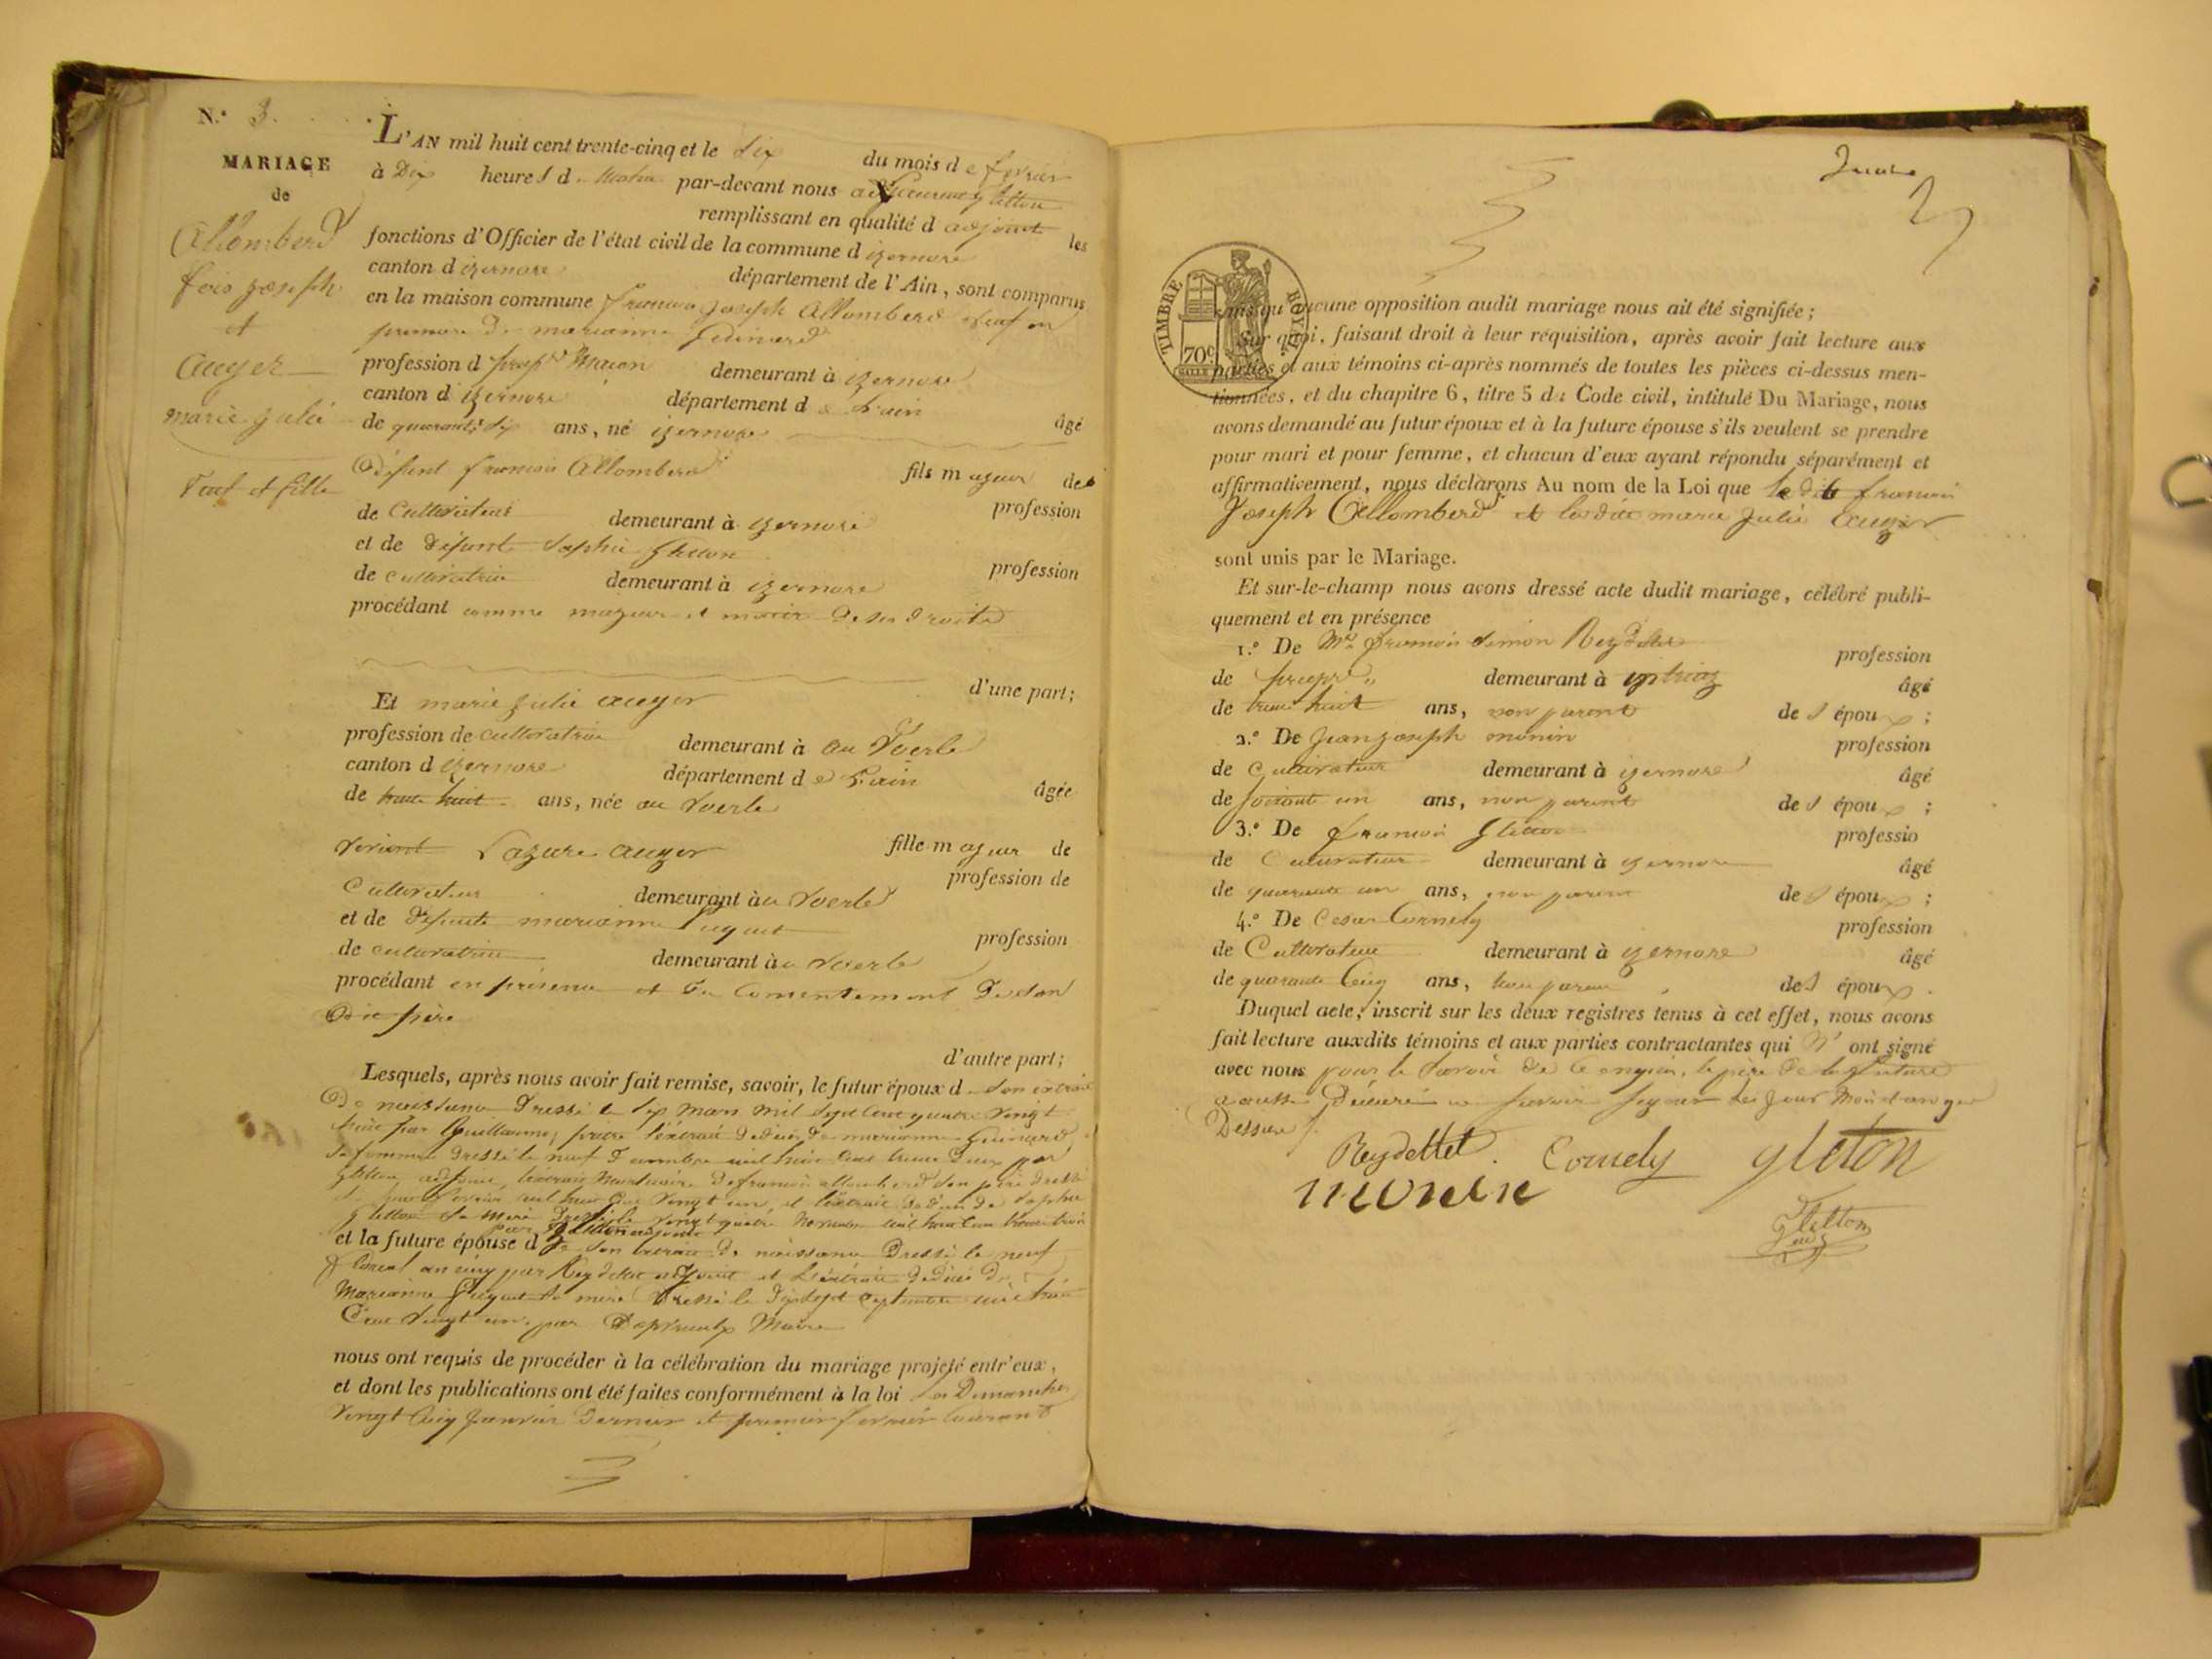 N.° 3.
MARIAGE
de
Allomberd
fois joseph
et
auger
marie julie
veuf et fille
L'AN mil huit cent trente-cinq et le dix du mois de février
à Dix heures d. matin par-devant nous gletton
remplissant en qualité d adjoint les
fonctions d'Officier de l'état civil de la commune d izernore
canton d izernore département de l'Ain, sont comparus
en la maison commune françois joseph Allomberd veuf en
premiere de marianne guinard
profession d prop.re Macon demeurant à izernore
canton d izernore département de l'ain
de quarante six ans, né izernore âgé
Défunt françois Allomberd fils majeur de
de Cultivateur demeurant à izernore profession
et de défunte sophie gletton
de cultivatrice demeurant à izernore profession
procédant comme majeur et maitre de ses droits
d'une part;
Et marie julie auger
profession de cultivatrice demeurant à au Voerle
canton d izernore département de l'ain
de trente huit ans, née au Voerle âgée
vivant Lazare auger fille majeur de
Cultivateur demeurant à au Voerle profession de
et de défunte marianne puguet
de cultivatrice demeurant à au Voerle profession
procédant en présence et du consentement de son
dit père
d'autre part;
Lesquels, après nous avoir fait remise, savoir, le futur époux d son extrait
De naissance dressé le six mars mil sept cent quatre vingt
huit par Guillaume, pretre l'extrait de décès de marianne guinard
sa femme dressé le neuf mil huit cent trente deux par
gletton adjoint, l'extrait mortuaire de françois allomberd son père dressé
février mil huit cent vingt un, et l'extrait de décès de sophie
gletton sa mere dressé le vingt quatre novembre mil huit cent trente trois
par gletton adjoint
et la future épouse d son extrait de naissance dressé le neuf
floréal an cinq par Reydellet adjoint et l'extrait de décès de
Marianne puguet sa mere dressé le dix sept septembre mil huit
Cent vingt un par Maire
nous ont requis de procéder à la célébration du mariage projeté entr'eux,
et dont les publications ont été faites conformément à la loi les Dimanches
vingt cinq janvier dernier et premier fevrier courant
TIMBRE ROYAL
70c
sans qu'aucune opposition audit mariage nous ait été signifiée;
Sur quoi, faisant droit à leur réquisition, après avoir fait lecture aux
parties et aux témoins ci-après nommés de toutes les pièces ci-dessus men-
tionnées, et du chapitre 6, titre 5 du Code civil, intitulé Du Mariage, nous
avons demandé au futur époux et à la future épouse s'ils veulent se prendre
pour mari et pour femme, et chacun d'eux ayant répondu séparément et
affirmativement, nous déclarons Au nom de la Loi que le dit françois
Joseph Allomberd et la dite marie julie auger
sont unis par le Mariage.
Et sur-le-champ nous avons dressé acte dudit mariage, célébré publi-
quement et en présence
1.° De Mr françois simon Reydellet profession
de propre demeurant à âgé
de trente huit ans, non parent des époux;
2.° De jean joseph monin profession
de Cultivateur demeurant à izernore âgé
de soixante un ans, non parent des époux;
3.° De françois gletton professio
de Cultivateur demeurant à izernore âgé
de quarante un ans, non parent des époux;
4.° De Cesar Cornely profession
de Cultivateur demeurant à izernore âgé
de quarante cinq ans, non parent des époux.
Duquel acte, inscrit sur les deux registres tenus à cet effet, nous avons
fait lecture auxdits témoins et aux parties contractantes qui n' ont signé
avec nous pour le savoir de ce enquis, le père de la future
a aussi déclaré ne savoir signer les jour mois et an que
Dessus
Reydellet Cornely gleton
monin
Gletton
adj